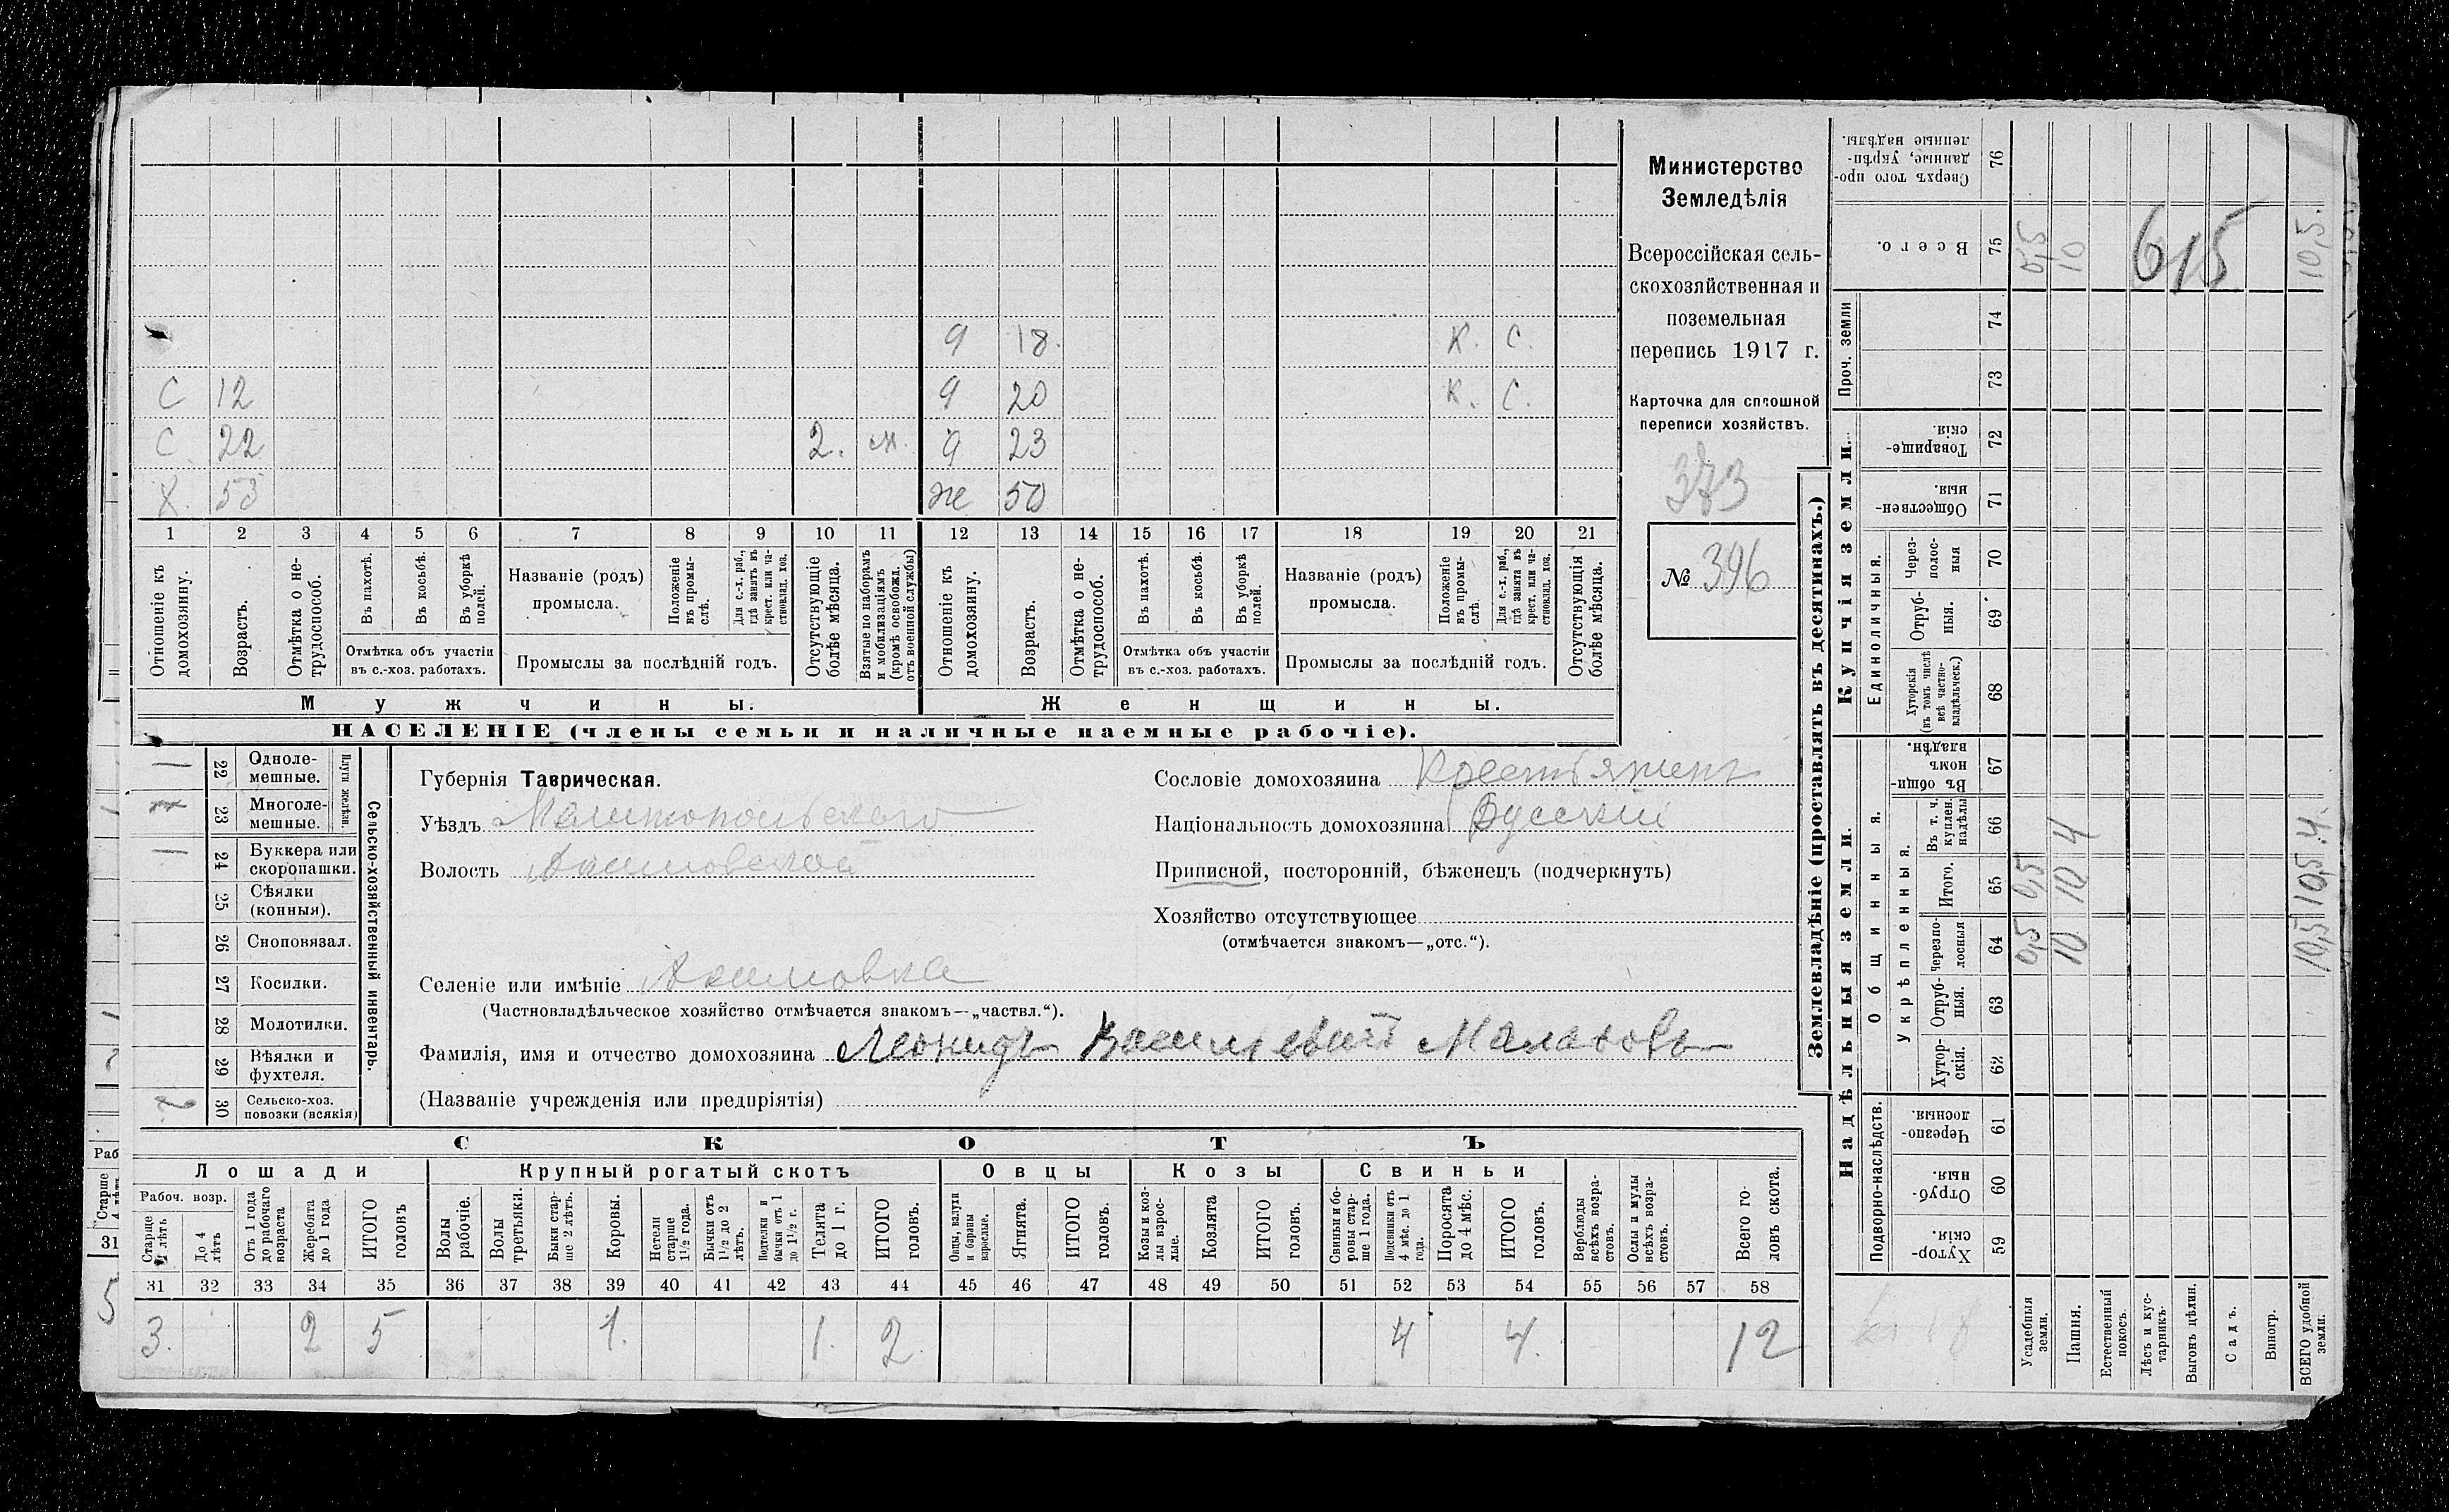 9 18. К. С.
С 12 9 20 К. С.
С 22 2. м. 9 23
Х. 53 же 50
1 2 3 4 5 6 7 8 9 10 11 12 13 14 15 16 17 18 19 20 21
Отношеніе къ домохозяину.
Возрастъ.
Отмѣтка о не-трудоспособ.
Въ пахотѣ.
Въ косьбѣ.
Въ уборкѣ полей.
Отмѣтка объ участіи
въ с.-хоз. работахъ.
Названіе (родъ)
промысла.
Положеніе въ промы-слѣ.
Для с.-х. раб., гдѣ занятъ въ крест. или ча-стновлад. хоз.
Промыслы за послѣдній годъ.
Отсутствующіе болѣе мѣсяца.
Взятые по наборамъ и мобилизаціямъ (кромѣ освобожд. отъ военной службы)
Отношеніе къ домохозяину.
Возрастъ.
Отмѣтка о не-трудоспособ.
Въ пахотѣ.
Въ косьбѣ.
Въ уборкѣ полей.
Отмѣтка объ участіи
въ с.-хоз. работахъ.
Названіе (родъ)
промысла.
Положеніе въ промы-слѣ.
Для с.-х. раб., гдѣ занята въ крест. или ча-стновлад. хоз.
Промыслы за послѣдній годъ.
Отсутствующія болѣе мѣсяца.
Мужчины. Женщины.
НАСЕЛЕНІЕ (члены семьи и наличные наемные рабочіе).
Министерство
Земледѣлія
Всероссійская сель-
скохозяйственная и
поземельная
перепись 1917 г.
Карточка для сплошной
переписи хозяйствъ.
373
№ 396
22 Одноле-мешные.
23 Многоле-мешные.
Плуги желѣзн.
24 Буккера или скоропашки.
25 Сѣялки (конныя).
26 Сноповязал.
27 Косилки.
28 Молотилки.
29 Вѣялки и фухтеля.
30 Сельско-хоз. повозки (всякія)
2
Сельско-хозяйственный инвентарь.
Губернія Таврическая.
Уѣздъ Мелитопольскаго
Волость Акимовской
Сословіе домохозяина Крестьянинъ
Національность домохозяина Русскій
Приписной, посторонній, бѣженецъ (подчеркнуть)
Хозяйство отсутствующее
(отмѣчается знакомъ—„отс.“).
Селеніе или имѣніе Акимовка
(Частновладѣльческое хозяйство отмѣчается знакомъ—„частвл.“).
Фамилія, имя и отчество домохозяина Леонидъ Васильевичъ Малаховъ
(Названіе учрежденія или предпріятія)
СКОТЪ
Лошади Крупный рогатый скотъ Овцы Козы Свиньи
Рабоч. возр.
Старше 4 лѣтъ
До 4 лѣтъ
Отъ 1 года до рабочаго возраста
Жеребята до 1 года
ИТОГО головъ
Волы рабочіе.
Волы третьяки.
Быки стар-ше 2 лѣтъ.
Коровы.
Нетели старше 1½ года.
Бычки отъ 1½ до 2 лѣтъ.
Подтелки и бычки отъ 1 до 1½ г.
Телята до 1 г.
ИТОГО головъ.
Овцы, валухи и бараны взрослые.
Ягнята.
ИТОГО головъ.
Козы и коз-лы взрос-лые.
Козлята
ИТОГО головъ.
Свиньи и бо-ровы стар-ше 1 года.
Подсвинки отъ 4 мѣс. до 1 года.
Поросята до 4 мѣс.
ИТОГО головъ.
Верблюды всѣхъ возра-стовъ.
Ослы и мулы всѣхъ возра-стовъ.
Всего го-ловъ скота.
31 32 33 34 35 36 37 38 39 40 41 42 43 44 45 46 47 48 49 50 51 52 53 54 55 56 57 58
3. 2 5 1. 1. 2 4 4. 12
Землевладѣніе (проставлять въ десятинахъ.)
Купчія земли.
Надѣльныя земли.
Сверхъ того про-данные, укрѣп-ленные надѣлы. 76
Всего. 75 0,5 10 10,5.
615
Проч. земли 74 73
Товарище-скія. 72
Обществен-ныя. 71
Единоличныя.
Через-полос-ныя 70
Отруб-ныя. 69
Хуторскія (въ томъ числѣ всѣ частно-владѣльческ.) 68
Общинныя.
Въ общи-номъ владѣн. 67
Укрѣпленныя.
Въ т. ч. куплен. надѣлы 66 4 4.
Итого. 65 0,5 10 10,5
Черезпо-лосныя 64 0,5 10 10,5
Отруб-ныя. 63
Хутор-скія. 62
Подворно-наслѣдств.
Черезпо-лосныя. 61
Отруб-ныя. 60
Хутор-скія. 59
Усадебныя земли.
Пашня.
Естественный покосъ.
Лѣсъ и кус-тарникъ.
Выгонъ цѣлин.
Садъ.
Виногр.
ВСЕГО удобной земли.
Раб
Старше
31
5